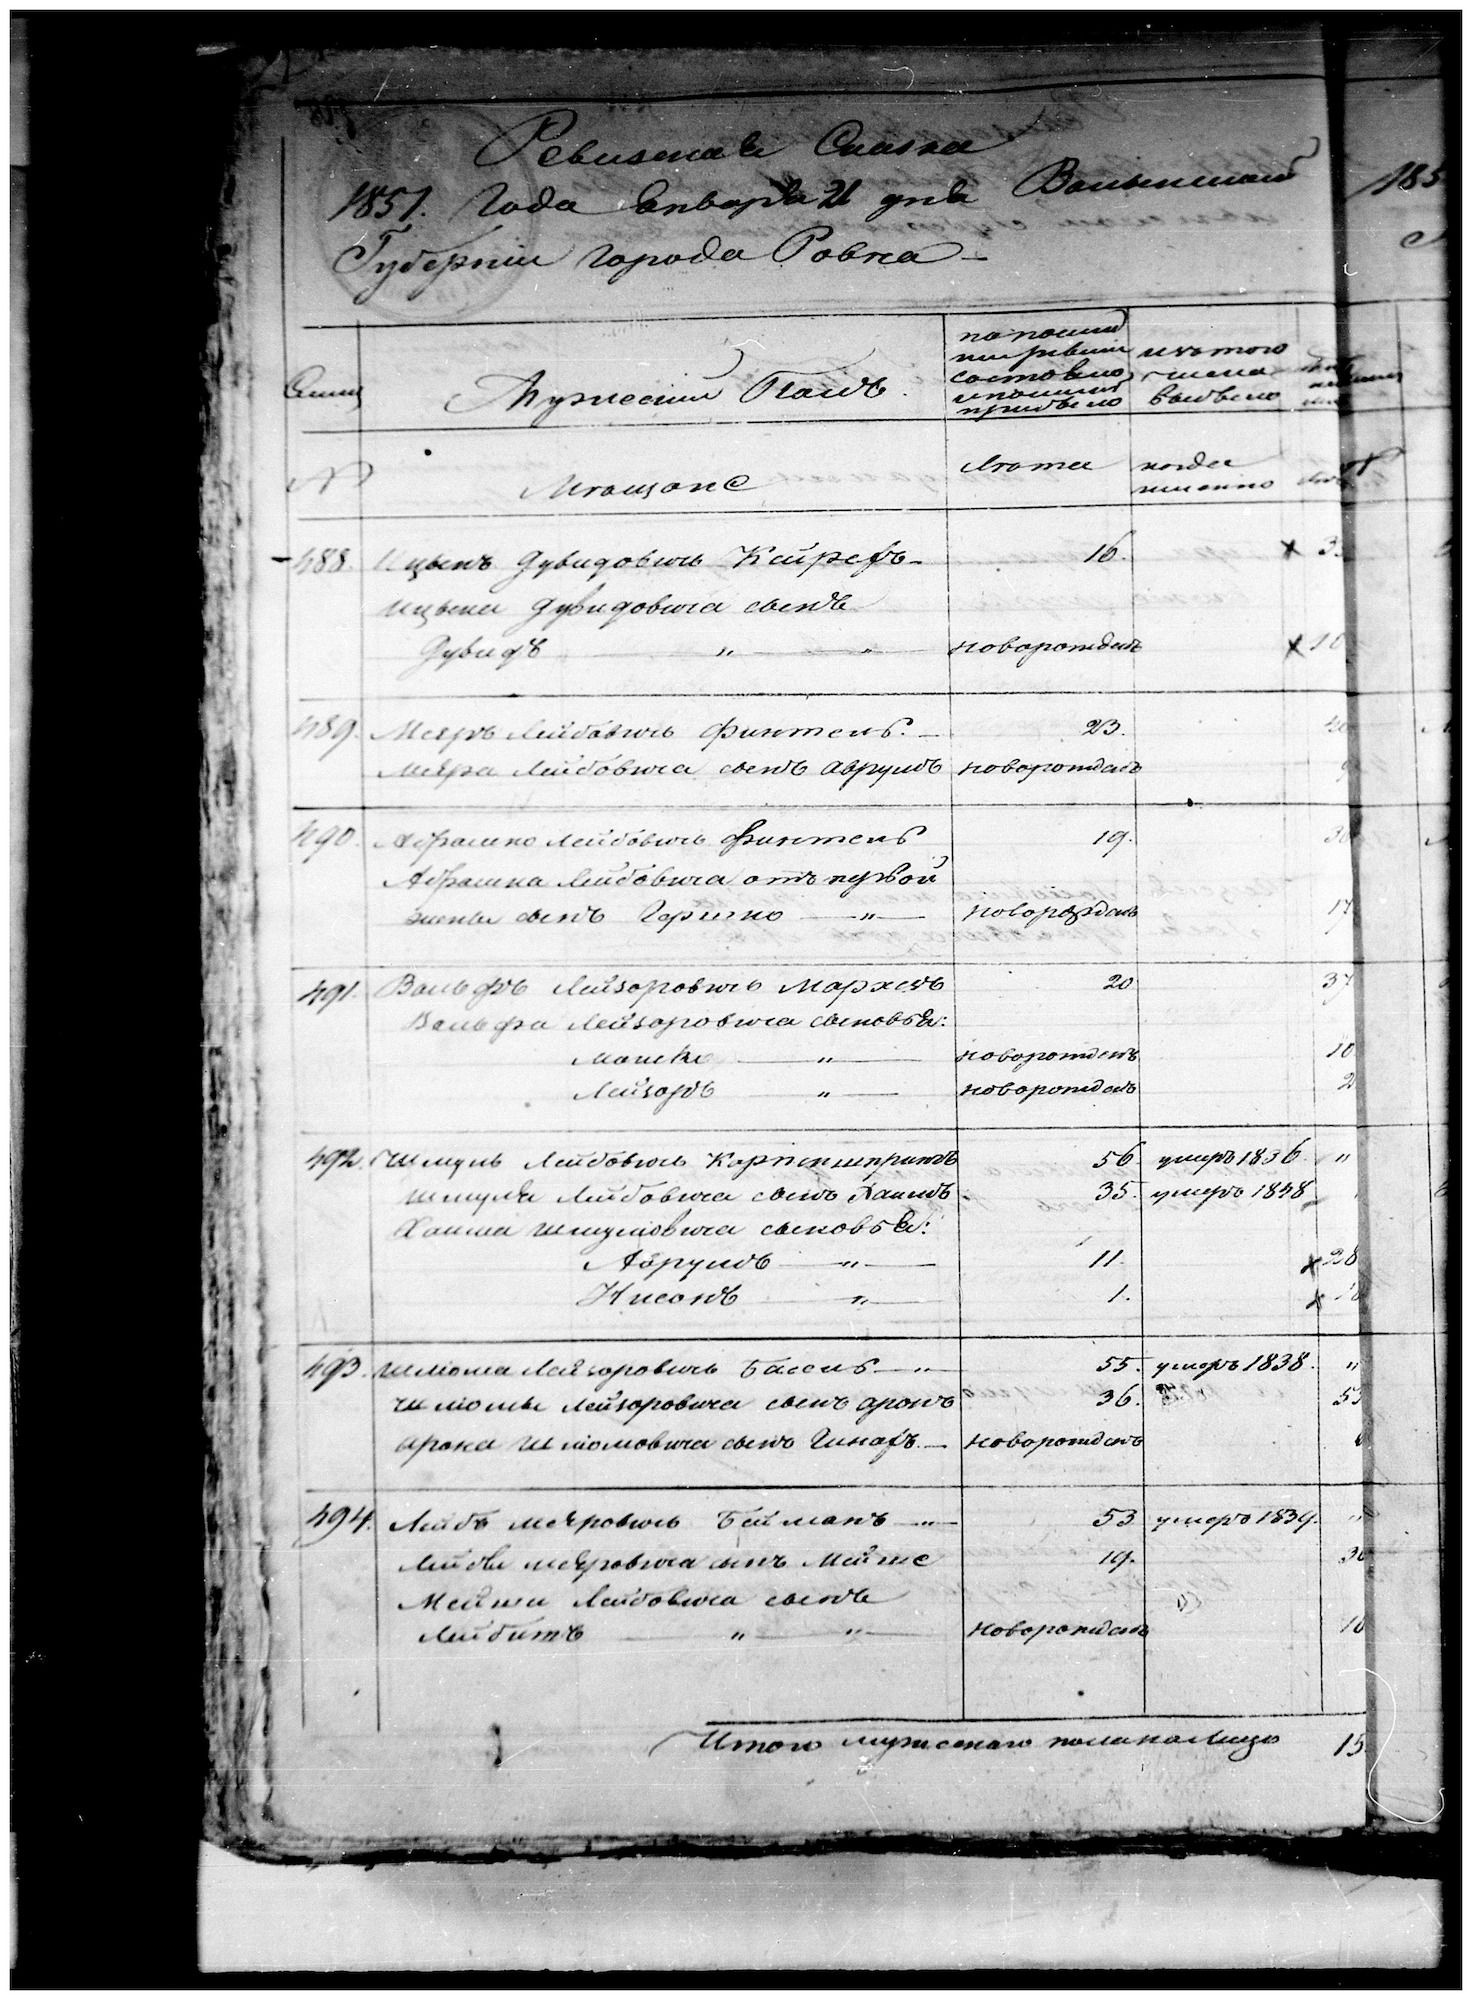 Ревизская Сказка
1851. Года Января 21 дня Волынской
Губернии города Ровна
185
Семьи
Мужескій Полъ.
по последней ревизіи состояло и после прибыло
изъ того числа выбыло
№
Мещане
Лета
когда именно
488. Ицыкъ Дувидовичь 16.
Ицыка Дувидовича сынъ
Дувидъ " " новорожденъ 10
489. Меяръ Лейбовичь Финтель. 23. 40
Меяра Лейбовича сынъ Аврумъ новорожденъ 9
490. Абрамко Лейбовичь Финтель 19.
Абрамка Лейбовича отъ первой
жены сынъ Гершко " новорожденъ 17
491. Вольфъ Лейзоровичь 20 37
Вольфа Лейзоровича сыновья:
Мошко " новорожденъ 10
Лейзоръ " новорожденъ 2
492. Шмуль Лейбовичь 56. умеръ 1836. "
Шмуля Лейбовича сынъ Хаимъ 35. умеръ 1848
Хаима Шмулiовича сыновья:
Аврумъ " 11. 28
Нисонъ " 1. 18
493. Шліома Лейзоровичь Басель " 55. умеръ 1838. "
Шліомы Лейзоровича сынъ Аронъ 36. 53
Арона Шліомовича сынъ новорожденъ
494. Лейбъ Меяровичь Бейманъ " 53 умеръ 1839. "
Лейбы Меяровича сынъ Мейше 19. 36
Мейши Лейбовича сынъ
Лейбишъ " " новорожденъ 10
Итого мужескаго пола на лицо 15